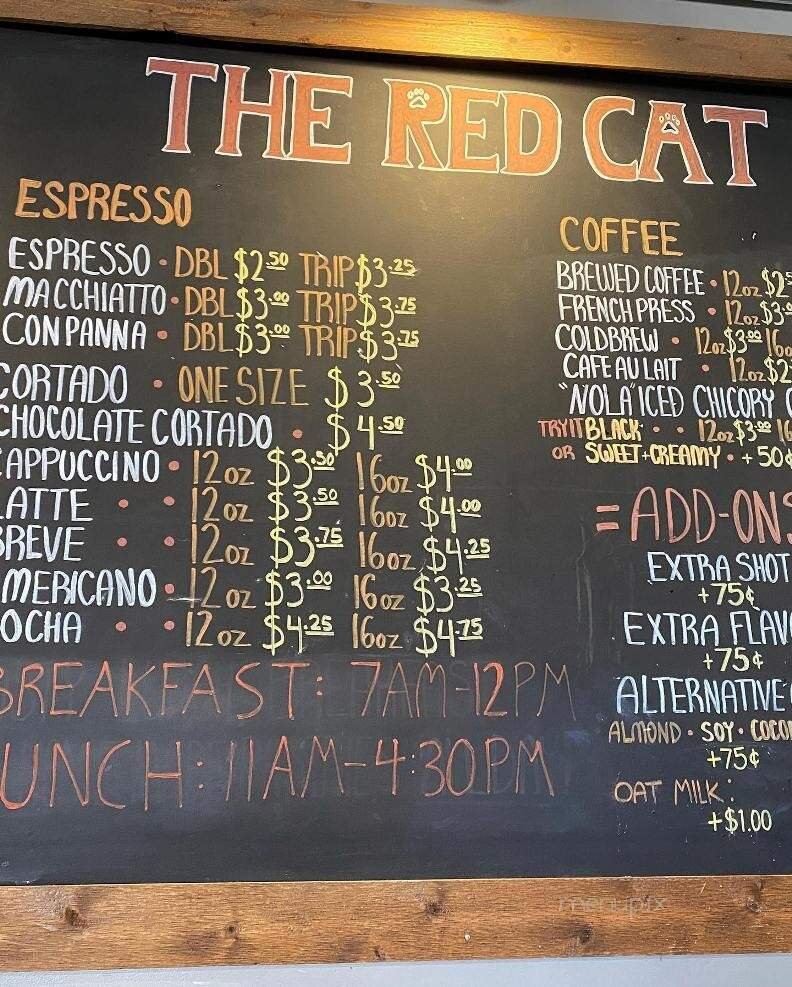 THE RED CAT
ESPRESSO
ESPRESSO · DBL $2.50 TRIP $3.25
MACCHIATTO · DBL $3.00 TRIP $3.75
CON PANNA · DBL $3.00 TRIP $3.75
CORTADO · ONE SIZE $3.50
CHOCOLATE CORTADO · $4.50
CAPPUCCINO · 12oz $3.50 16oz $4.00
LATTE · · 12oz $3.50 16oz $4.00
BREVE · · 12oz $3.75 16oz $4.25
MERICANO · 12oz $3.00 16oz $3.25
OCHA · · 12oz $4.25 16oz $4.75
BREAKFAST: 7AM-12PM
UNCH: 11AM-4:30PM
COFFEE
BREWED COFFEE · 12oz
FRENCH PRESS · 12oz $3
COLDBREW · 12oz $3.00 16o
CAFE AU LAIT · 12oz $2
"NOLA" ICED CHICORY
TRY IT BLACK · · 12oz $3.00 16
OR SWEET+CREAMY · +50¢
=ADD-ONS
EXTRA SHOT
+75¢
EXTRA FLAV
+75¢
ALTERNATIVE
ALMOND · SOY · COCO
+75¢
OAT MILK:
+$1.00
menupix